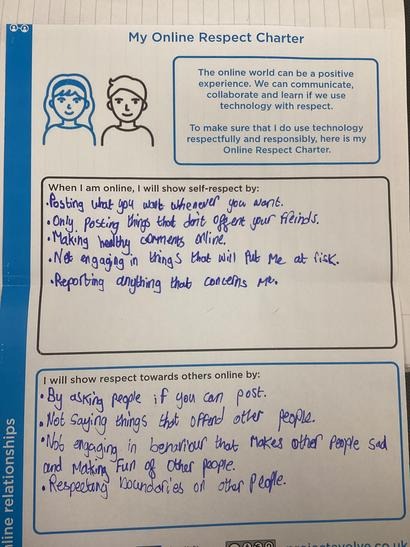 My Online Respect Charter
The online world can be a positive
experience. We can communicate,
collaborate and learn if we use
technology with respect.
To make sure that I do use technology
respectfully and responsibly, here is my
Online Respect Charter.
When I am online, I will show self-respect by:
•Posting what you want whenever you want.
•Only posting things that don't offent your freinds.
•Making healthy comments online.
•Not engaging in things that will Put Me at risk.
•Reporting anything that concerns me.
I will show respect towards others online by:
•By asking people if you can post.
•Not Saying things that offend other people.
•Not engaging in behaviour that Makes other People sad
and Making Fun of Other people.
•Respecting boundaries on other People.
line relationships
projectevolve.co.uk